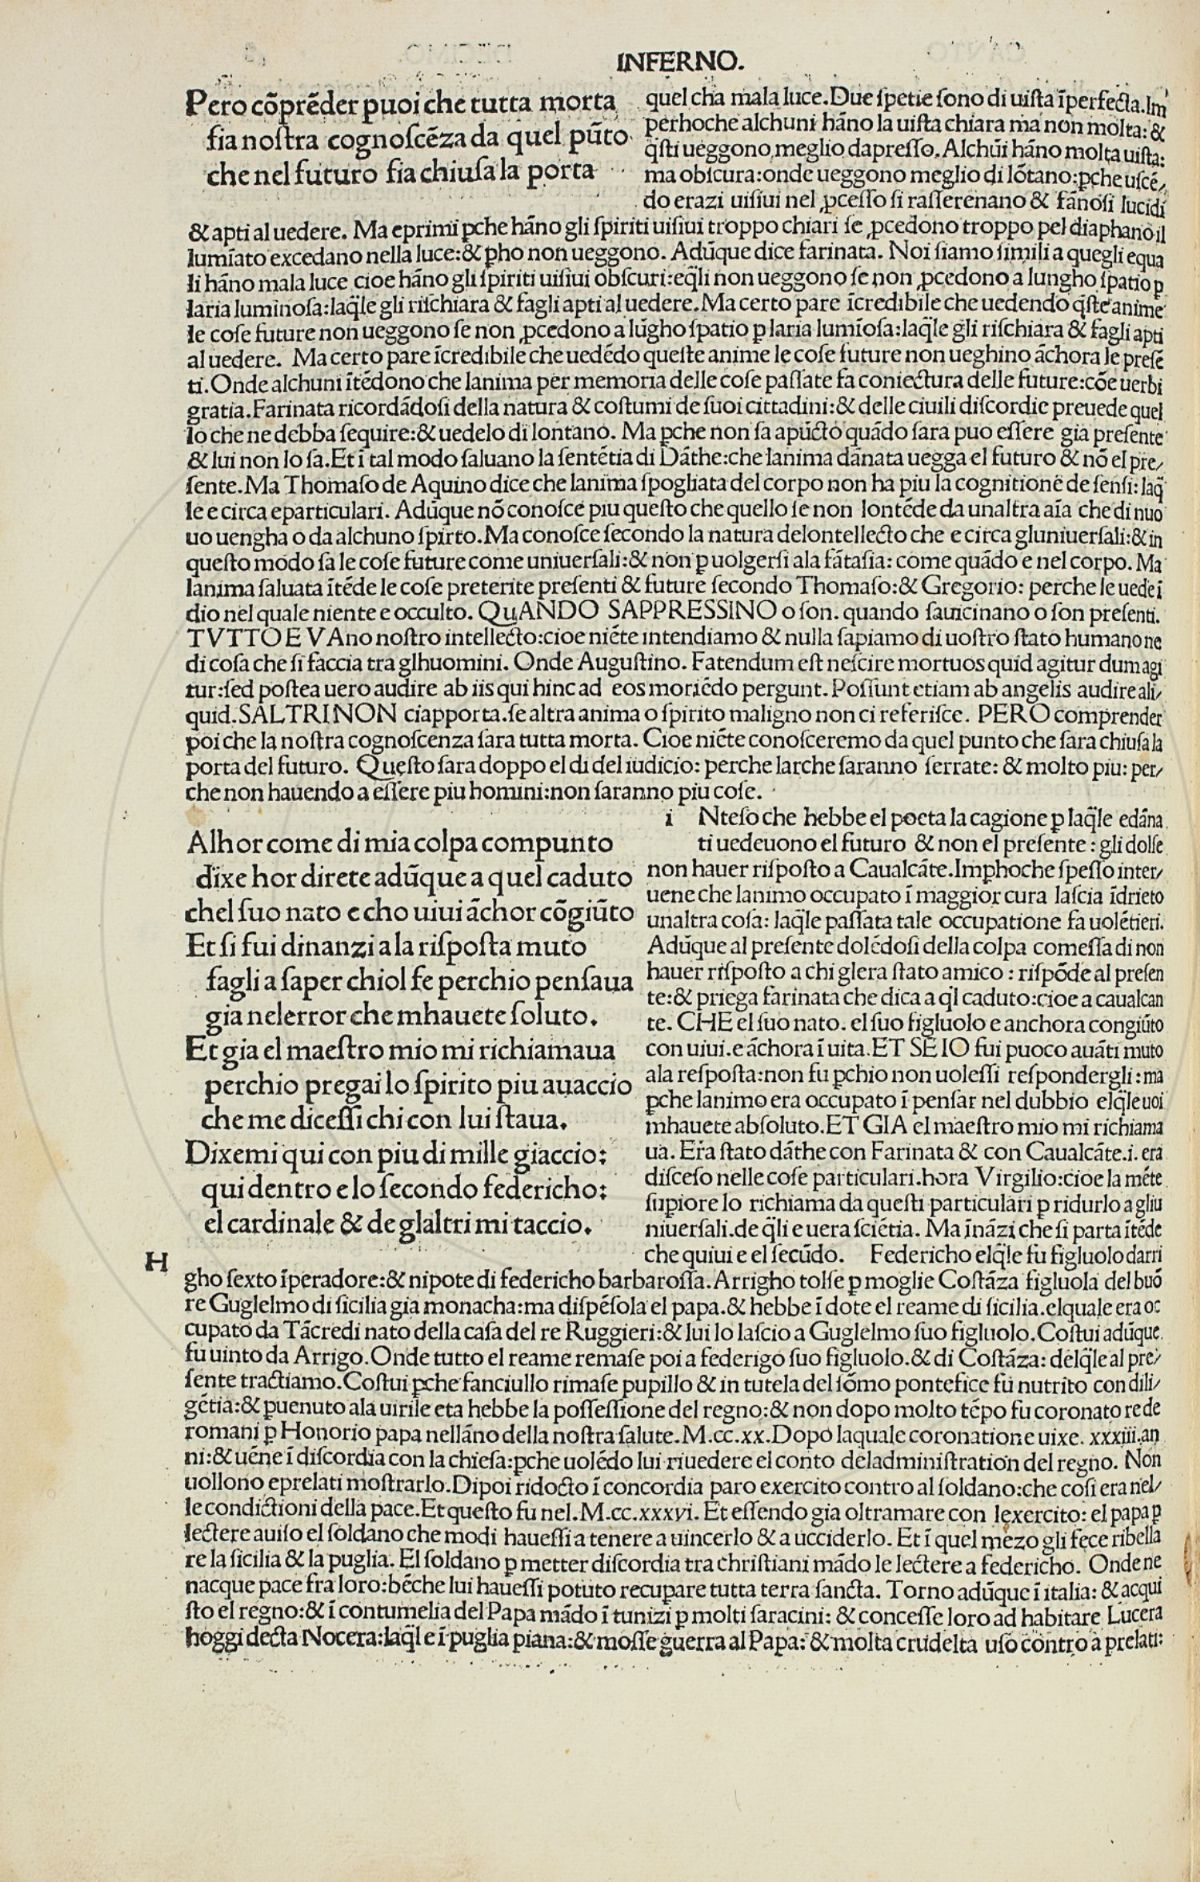 INFERNO.
Pero cõprẽder puoi che tutta morta
fia noſtra cognoſcẽza da quel pũto
che nel futuro fia chiuſa la porta
quel cha mala luce. Due ſpetie ſono di uiſta ĩperfecta. Im
perhoche alchuni hãno la uiſta chiara ma non molta: &
q̃ſti ueggono meglio dapreſſo. Alchũi hãno molta uiſta:
ma obſcura: onde ueggono meglio di lõtano: ꝑche uſcẽ/
do e razi uiſiui nel ꝓceſſo ſi raſſerenano & fãnoſi lucidi
& apti al uedere. Ma e primi ꝑche hãno gli ſpiriti uiſiui troppo chiari ſe ꝓcedono troppo pel diaphano il
lumĩato excedano nella luce: & ꝑho non ueggono. Adũque dice farinata. Noi ſiamo ſimili a quegli equa
li hãno mala luce cioe hãno gli ſpiriti uiſiui obſcuri: eq̃li non ueggono ſe non ꝓcedono a lungho ſpatio ꝑ
laria luminoſa: laq̃le gli riſchiara & fagli apti al uedere. Ma certo pare ĩcredibile che uedendo q̃ſte anime
le coſe future non ueggono ſe non ꝓcedono a lũgho ſpatio ꝑ laria lumĩoſa: laq̃le gli riſchiara & fagli apti
al uedere. Ma certo pare ĩcredibile che uedẽdo queſte anime le coſe future non ueghino ãchora le preſẽ
ti. Onde alchuni ĩtẽdono che lanima per memoria delle coſe paſſate fa coniectura delle future: cõe uerbi
gratia. Farinata ricordãdoſi della natura & coſtumi de ſuoi cittadini: & delle ciuili diſcordie preuede quel
lo che ne debba ſequire: & uedelo di lontano. Ma ꝑche non ſa apũcto quãdo ſara puo eſſere gia preſente
& lui non lo ſa. Et ĩ tal modo ſaluano la ſentẽtia di Dãthe: che lanima dãnata uegga el futuro & nõ el pre/
ſente. Ma Thomaſo de Aquino dice che lanima ſpogliata del corpo non ha piu la cognitionẽ de ſenſi: laq̃
le e circa e particulari. Adũque nõ conoſce piu queſto che quello ſe non lontẽde da unaltra aĩa che di nuo
uo uengha o da alchuno ſpirto. Ma conoſce ſecondo la natura delontellecto che e circa gluniuerſali: & in
queſto modo ſa le coſe future come uniuerſali: & non ꝑ uolgerſi ala fãtaſia: come quãdo e nel corpo. Ma
lanima ſaluata ĩtẽde le coſe preterite preſenti & future ſecondo Thomaſo: & Gregorio: perche le uede ĩ
dio nel quale niente e occulto. QuANDO SAPPRESSINO o ſon. quando ſauicinano o ſon preſenti.
TVTTO E VAno noſtro intellecto: cioe niẽte intendiamo & nulla ſapiamo di uoſtro ſtato humano ne
di coſa che ſi faccia tra glhuomini. Onde Auguſtino. Fatendum eſt neſcire mortuos quid agitur dum agi
tur: ſed poſtea uero audire ab iis qui hinc ad eos moriẽdo pergunt. Poſſunt etiam ab angelis audire ali/
quid. SALTRI NON ciapporta. ſe altra anima o ſpirito maligno non ci referiſce. PERO comprender
poi che la noſtra cognoſcenza ſara tutta morta. Cioe niẽte conoſceremo da quel punto che ſara chiuſa la
porta del futuro. Queſto ſara doppo el di del iudicio: perche larche ſaranno ſerrate: & molto piu: per/
che non hauendo a eſſere piu homini: non ſaranno piu coſe.
Alhor come di mia colpa compunto
dixe hor direte adũque a quel caduto
chel ſuo nato e cho uiui ãchor cõgiũto
Et ſi fui dinanzi ala riſpoſta muto
fagli a ſaper chiol fe perchio penſaua
gia nelerror che mhauete ſoluto.
Et gia el maeſtro mio mi richiamaua
perchio pregai lo ſpirito piu auaccio
che me diceſſi chi con lui ſtaua.
Dixemi qui con piu di mille giaccio:
qui dentro e lo ſecondo federicho:
el cardinale & de glaltri mi taccio.
i Nteſo che hebbe el poeta la cagione ꝑ laq̃le e dãna
ti uedeuono el futuro & non el preſente: gli dolſe
non hauer riſpoſto a Caualcãte. Imꝑhoche ſpeſſo inter/
uene che lanimo occupato ĩ maggior cura laſcia ĩdrieto
unaltra coſa: laq̃le paſſata tale occupatione fa uolẽtieri.
Adũque al preſente dolẽdoſi della colpa comeſſa di non
hauer riſpoſto a chi glera ſtato amico: riſpõde al preſen
te: & priega farinata che dica a q̃l caduto: cioe a caualcan
te. CHE el ſuo nato. el ſuo figluolo e anchora congiũto
con uiui. e ãchora ĩ uita. ET SE IO fui puoco auãti muto
ala reſpoſta: non fu ꝑchio non uoleſſi reſpondergli: ma
ꝑche lanimo era occupato ĩ penſar nel dubbio elq̃le uoi
mhauete abſoluto. ET GIA el maeſtro mio mi richiama
ua. Era ſtato dãthe con Farinata & con Caualcãte. i. era
diſceſo nelle coſe particulari. hora Virgilio: cioe la mẽte
ſupiore lo richiama da queſti particulari ꝑ ridurlo a gliu
niuerſali. de q̃li e uera ſciẽtia. Ma ĩnãzi che ſi parta ĩtẽde
che quiui e el ſecũdo. Federicho elq̃le fu figluolo darri
H
gho ſexto ĩperadore: & nipote di federicho barbaroſſa. Arrigho tolſe ꝑ moglie Coſtãza figluola del buõ
re Guglelmo di ſicilia gia monacha: ma diſpẽſola el papa. & hebbe ĩ dote el reame di ſicilia. elquale era oc
cupato da Tãcredi nato della caſa del re Ruggieri: & lui lo laſcio a Guglelmo ſuo figluolo. Coſtui adũque
fu uinto da Arrigo. Onde tutto el reame remaſe poi a federigo ſuo figluolo. & di Coſtãza: delq̃le al pre/
ſente tractiamo. Coſtui ꝑche fanciullo rimaſe pupillo & in tutela del ſõmo pontefice fu nutrito con dili/
gẽtia: & puenuto ala uirile eta hebbe la poſſeſſione del regno: & non dopo molto tẽpo fu coronato re de
romani ꝑ Honorio papa nellãno della noſtra ſalute. M.cc.xx. Dopo laquale coronatione uixe. xxxiii. an
ni: & uẽne ĩ diſcordia con la chieſa: ꝑche uolẽdo lui riuedere el conto deladminiſtration del regno. Non
uollono e prelati moſtrarlo. Dipoi ridocto ĩ concordia paro exercito contro al ſoldano: che coſi era nel/
le condictioni della pace. Et queſto fu nel. M.cc.xxxvi. Et eſſendo gia oltramare con lexercito: el papa ꝑ
lectere auiſo el ſoldano che modi haueſſi a tenere a uincerlo & a ucciderlo. Et ĩ quel mezo gli fece ribella
re la ſicilia & la puglia. El ſoldano ꝑ metter diſcordia tra chriſtiani mãdo le lectere a federicho. Onde ne
nacque pace fra loro: bẽche lui haueſſi potuto recupare tutta terra ſancta. Torno adũque ĩ italia: & acqui
ſto el regno: & ĩ contumelia del Papa mãdo ĩ tunizi ꝑ molti ſaracini: & conceſſe loro ad habitare Lucera
hoggi decta Nocera: laq̃le e ĩ puglia piana: & moſſe guerra al Papa: & molta crudelta uſo contro a prelati: